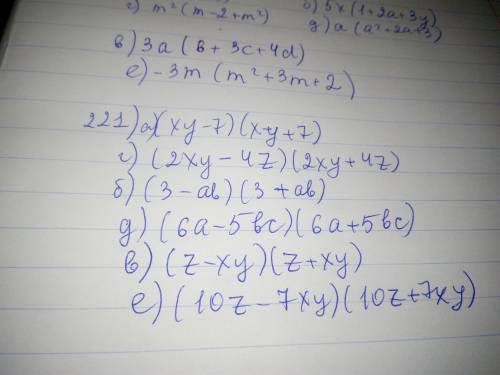 г) m²(m-2+m²) б) 5x(1+2a+3y)
д) a(a²+2a+3)
в) 3a(b+3c+4d)
е) -3m(m²+3m+2)
221) а)(xy-7)(x+y+7)
г) (2xy-4z)(2xy+4z)
б) (3-ab)(3+ab)
д) (6a-5bc)(6a+5bc)
в) (z-xy)(z+xy)
е) (10z-7xy)(10z+7xy)